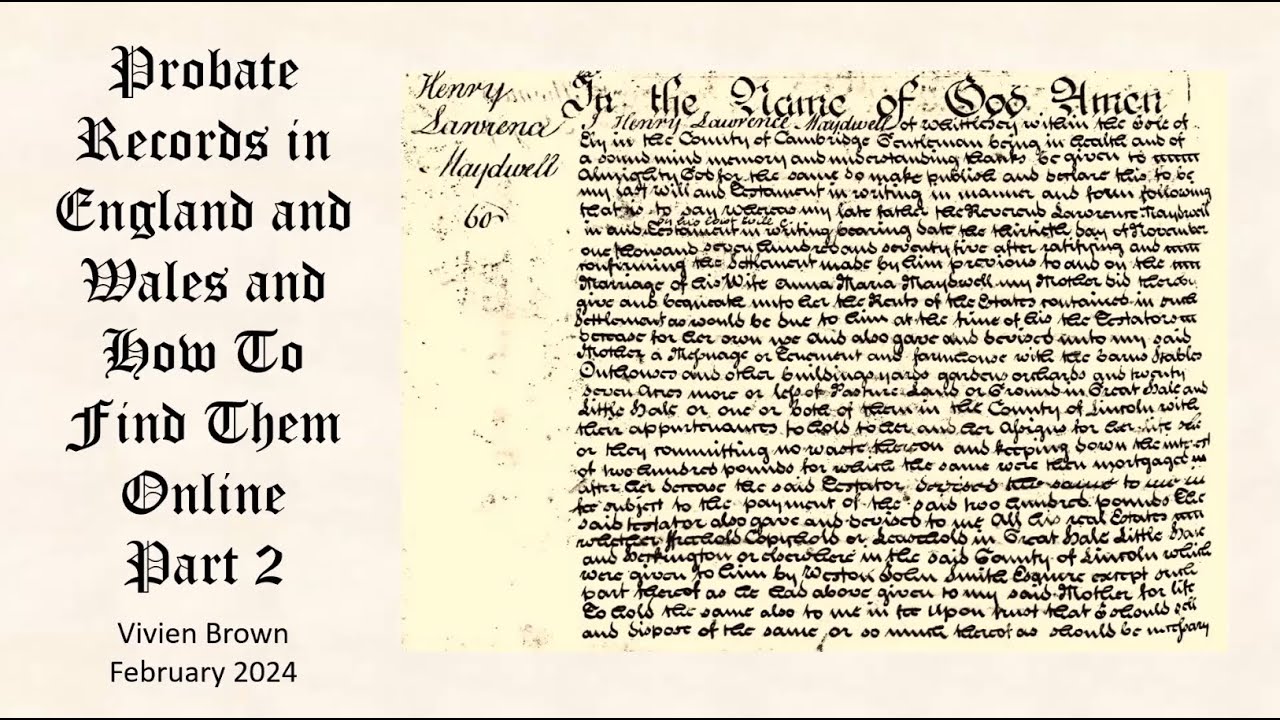 Probate
Records in
England and
Wales and
How To
Find Them
Online
Part 2
Vivien Brown
February 2024
Henry
Lawrence
Maydwell
60
In the Name of God Amen
I Henry Lawrence Maydwell of Whittlesey within the Isle of
Ely in the County of Cambridge Gentleman being in health and of
a sound mind memory and understanding thanks be given to
Almighty God for the same do make publish and declare this to be
my last will and Testament in writing in manner and form following
that is to say whereas my late father the Reverend Lawrence Maydwell
in and by his last will
Testament in writing bearing date the thirtieth day of November
one thousand seven hundred and seventy five after ratifying and
confirming the Settlement made by him previous to and on the
Marriage of his Wife Anna Maria Maydwell my Mother did thereby
give and bequeath unto her the Rents of the Estates contained in such
Settlement as would be due to him at the time of his the Testators
decease for her own use And also gave and devised unto my said
Mother a Messuage or Tenement and farmhouse with the barns stables
Outhouses and other buildings yards gardens orchards and twenty
seven Acres more or less of Pasture Land or Ground in Great Hale and
Little Hale or one or both of them in the County of Lincoln with
their appurtenances to hold to her and her Assigns for her life she
or they committing no waste thereon and keeping down the interest
of two hundred pounds for which the same were then mortgaged
after her decease the said Testator devised the same to me in
fee subject to the payment of the said two hundred pounds The
said testator also gave and devised to me All his real Estates
whether Freehold Copyhold or Leasehold in Great Hale Little Hale
and Heckington or elsewhere in the said County of Lincoln which
were given to him by Weston John Smith Esquire except such
part thereof as he had above given to my said Mother for life
To hold the same also to me in fee Upon trust that I should sell
and dispose of the same or so much thereof as should be necessary